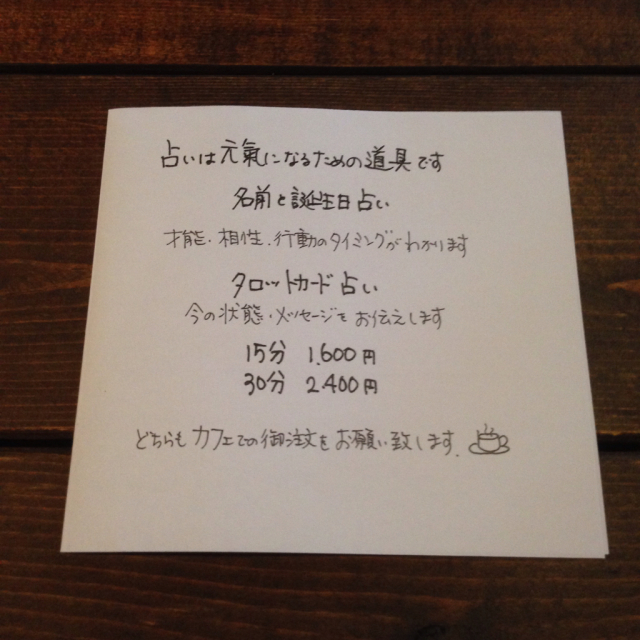 占いは元氣になるための道具です
名前と誕生日占い
才能、相性、行動のタイミングがわかります
タロットカード占い
今の状態・メッセージをお伝えします
15分 1.600円
30分 2.400円
どちらもカフェでの御注文をお願い致します。